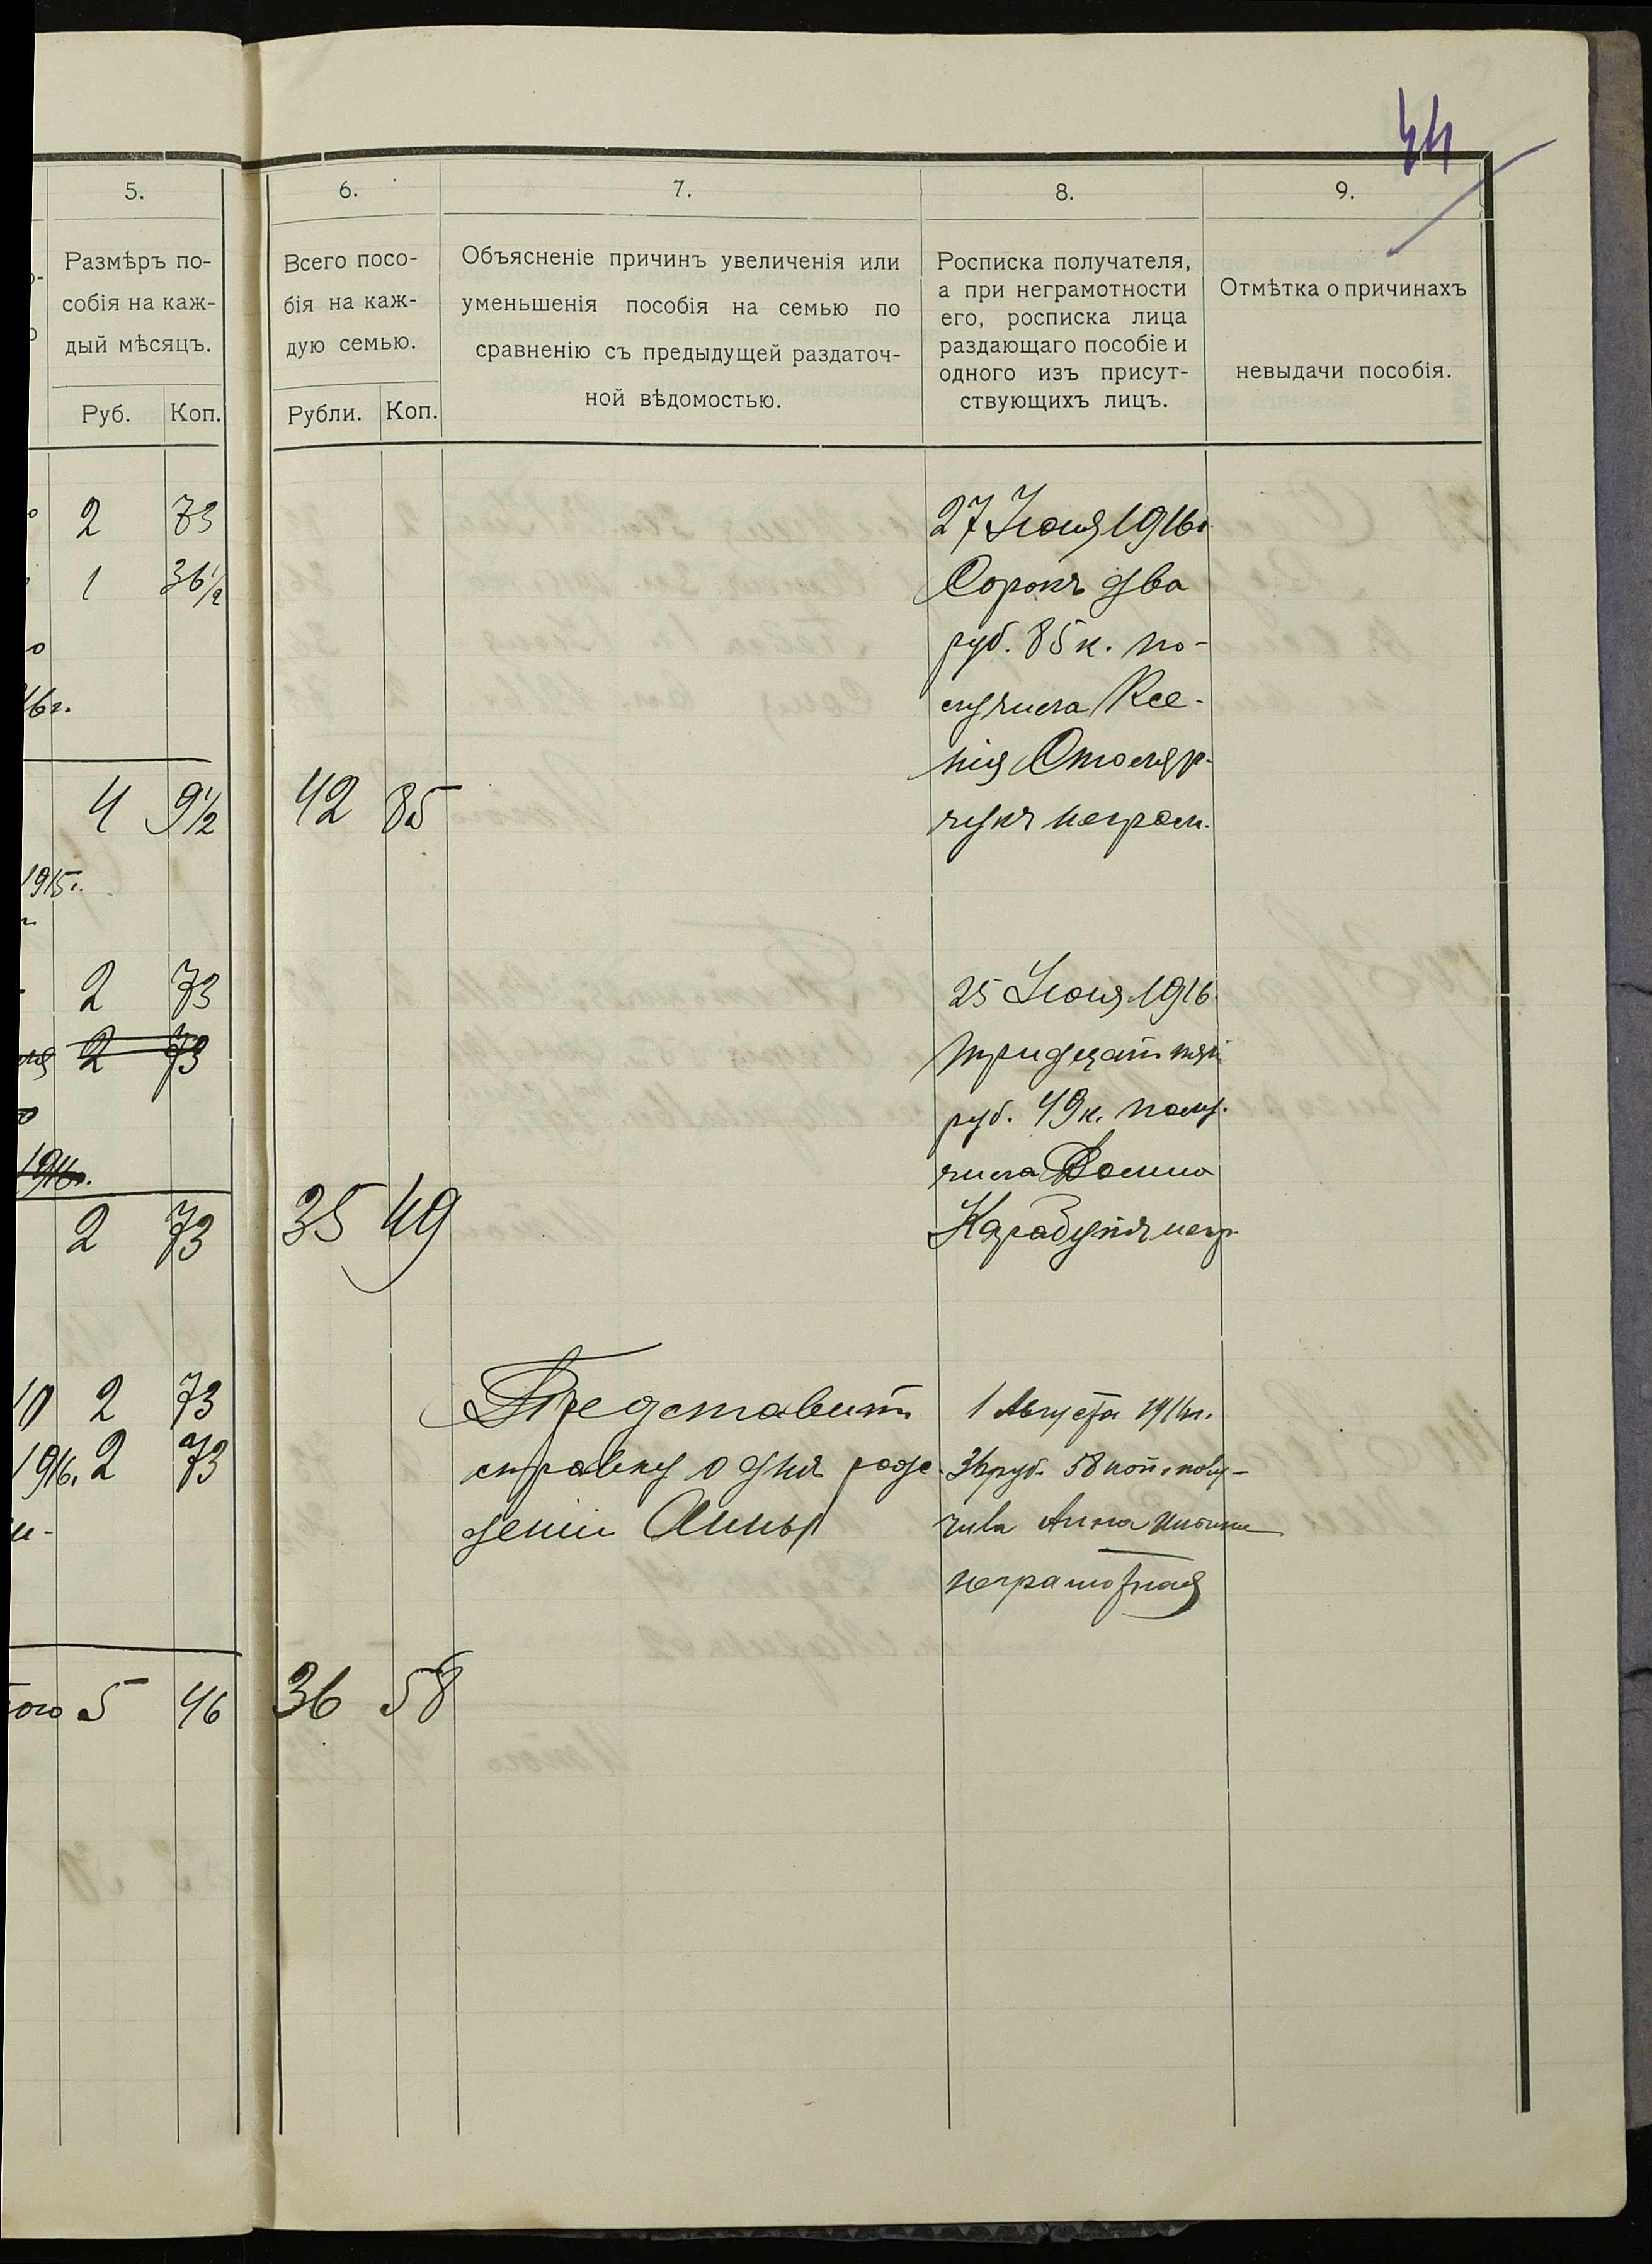 44
5.
6.
7.
8.
9.
Размѣръ по-
собія на каж-
дый мѣсяцъ.
Руб. Коп.
Всего посо-
бія на каж-
дую семью.
Рубли. Коп.
Объясненіе причинъ увеличенія или
уменьшенія пособія на семью по
сравненію съ предыдущей раздаточ-
ной вѣдомостью.
Росписка получателя,
а при неграмотности
его, росписка лица
раздающаго пособіе и
одного изъ присут-
ствующихъ лицъ.
Отмѣтка о причинахъ
невыдачи пособія.
2 73
1 36 1/2
16 г.
4 9 1/2
42 85
27 Іюня 1916 г.
Сорокъ два
руб. 85 к. по-
лучила Ксе-
нія Столяр-
чукъ неграм.
1915 г.
2 73
2 73
1916 г.
2 73
35 49
25 Іюня 1916
тридцать пять
руб. 49 к. полу-
чила Домна
Карабутъ негр.
10 2 73
1916. 2 73
ого 5 46
36 58
Представить
справку о днѣ рож-
деніи Анны
1 Августа 1916 г.
36 руб. 58 коп. полу-
чила Анна
неграмотная